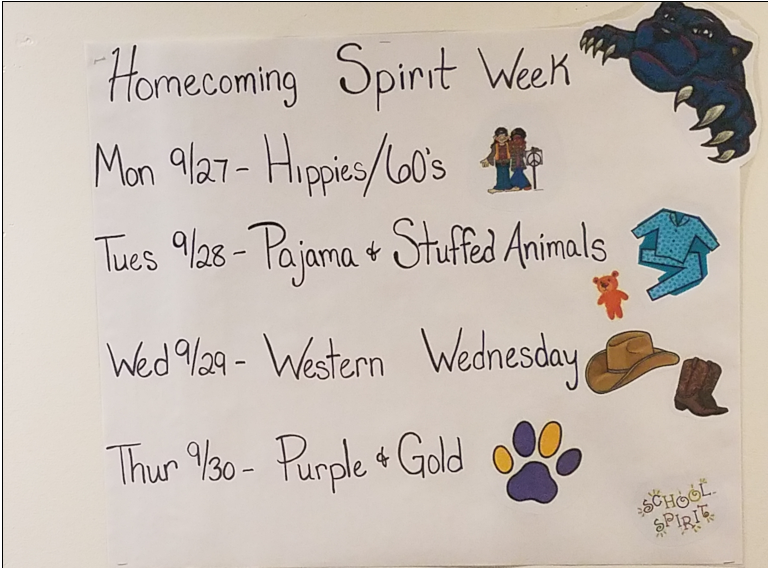 Homecoming Spirit Week
Mon 9/27 - Hippies/60's
Tues 9/28 - Pajama & Stuffed Animals
Wed 9/29 - Western Wednesday
Thur 9/30 - Purple & Gold
SCHOOL
SPIRIT